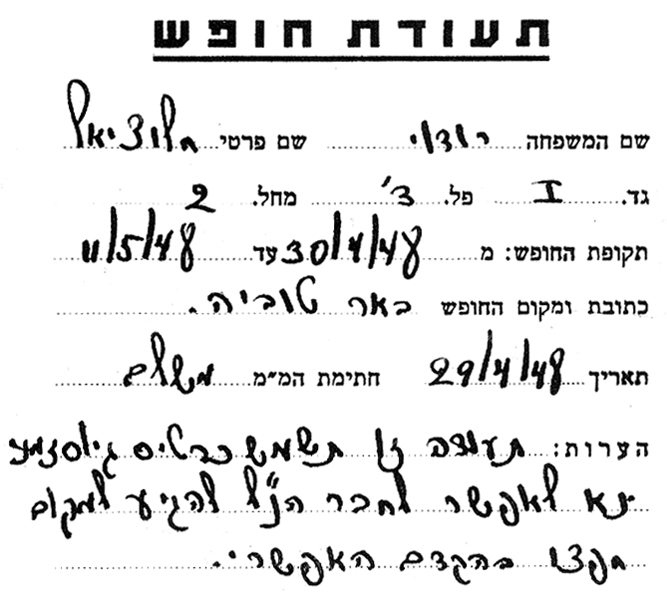 תעודת חופש
שם המשפחה יודוי שם פרטי חלוציאל
גד. I פל. ד' מחל. 2
תקופת החופש: מ 30/4/48 עד 11/5/48
כתובת ומקום החופש באר טוביה.
תאריך 29/4/48 חתימת המ״מ משלם
הערות: תעודה זו תשמש כרטיס
נא לאפשר לחבר הנ״ל להגיע למקום
חפצו בהקדם האפשרי.